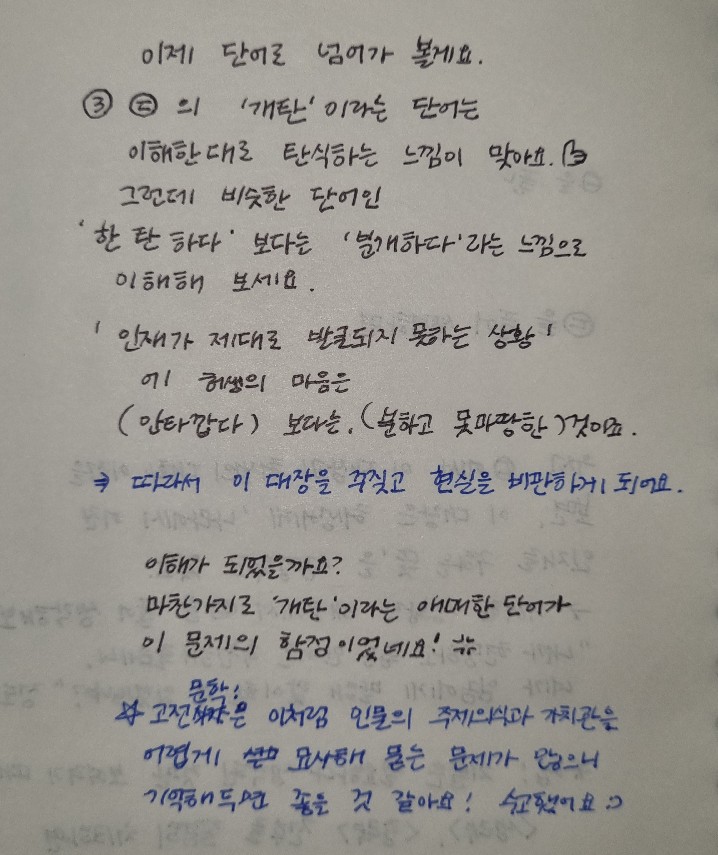 이제 단어로 넘어가 볼게요.
③ ㉢의 '개탄'이라는 단어는
이해한대로 탄식하는 느낌이 맞아요.
그런데 비슷한 단어인
'한탄하다' 보다는 '분개하다'라는 느낌으로
이해해 보세요.
'인재가 제대로 발굴되지 못하는 상황'
에 허생의 마음은
(안타깝다) 보다는, (분하고 못마땅한)것이죠.
→ 따라서 이 대장을 꾸짖고 현실을 비판하게 되어요.
이해가 되었을까요?
마찬가지로 '개탄'이라는 애매한 단어가
이 문제의 함정이었네요! ㅠㅠ
문학!
☆ 고전은 이처럼 인물의 주제의식과 가치관을
어렵게 묘사해 묻는 문제가 많으니
기억해두면 좋을 것 같아요! 수고했어요 :)